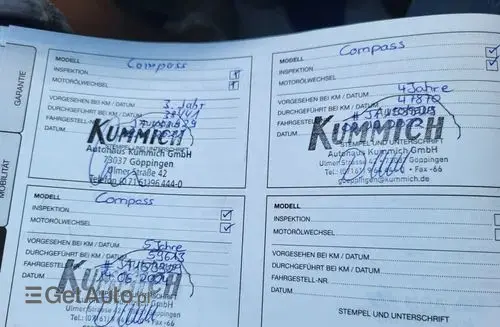 GARANTIE
MOBILITÄT
MODELL Compass
INSPEKTION
MOTORÖLWECHSEL
VORGESEHEN BEI KM / DATUM 3. Jahr
DURCHGEFÜHRT BEI KM / DATUM
FAHRGESTELL-
DATUM
KUMMICH
STEMPEL UND UNTERSCHRIFT
Autohaus Kummich GmbH
73037 Göppingen
Ulmer Straße 42
Telefon (07161) 96 444-0
MODELL Compass
INSPEKTION
MOTORÖLWECHSEL
VORGESEHEN BEI KM / DATUM 4 Jahre
DURCHGEFÜHRT BEI KM / DATUM 47870
FAHRGESTELL-
DATUM
KUMMICH
STEMPEL UND UNTERSCHRIFT
Autohaus Kummich GmbH
Ulmer Straße 42 • Göppingen
Tel.: • Fax -66
goeppingen@kummich.de
MODELL Compass
INSPEKTION
MOTORÖLWECHSEL
VORGESEHEN BEI KM / DATUM 5 Jahre
DURCHGEFÜHRT BEI KM / DATUM 59613
FAHRGESTELL-
DATUM
KUMMICH
Autohaus Kummich GmbH
MODELL
INSPEKTION
MOTORÖLWECHSEL
VORGESEHEN BEI KM / DATUM
DURCHGEFÜHRT BEI KM / DATUM
FAHRGESTELL-NR.
DATUM
STEMPEL UND UNTERSCHRIFT
GetAuto.pl